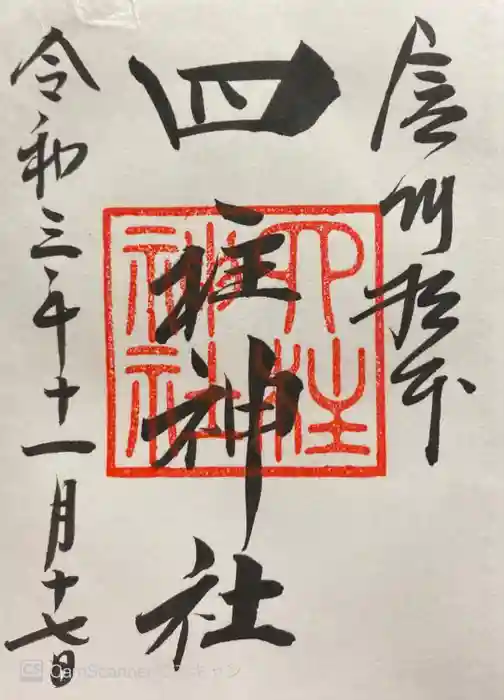 信州松本
四柱神社
四柱
神社
令和三年十一月十七日
CS CamScannerでスキャン